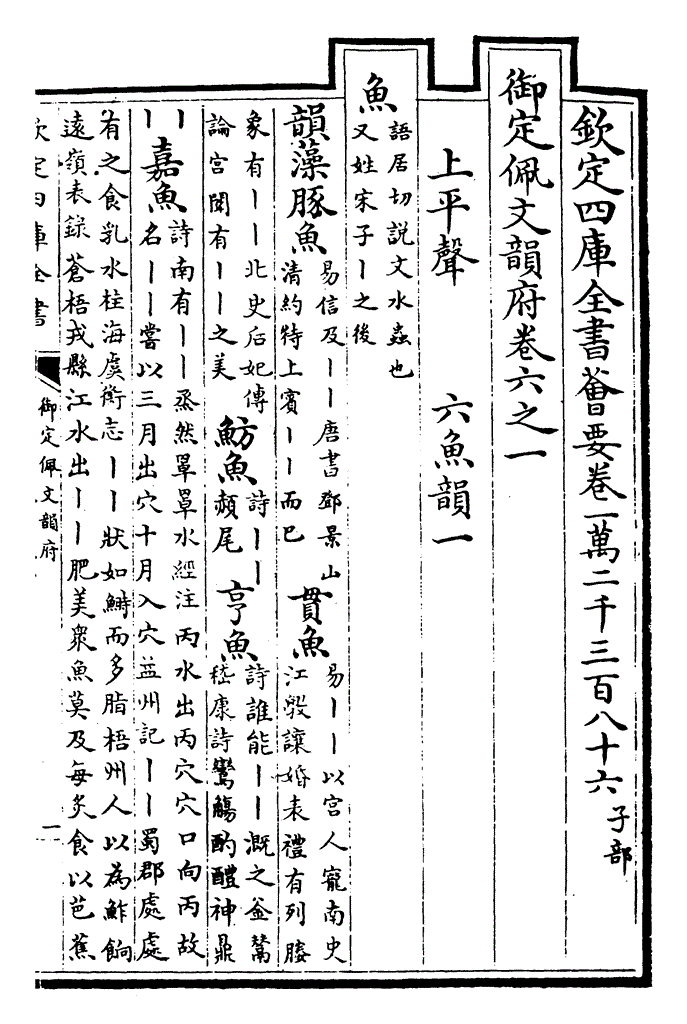 欽定四庫全書薈要卷一萬二千三百八十六 子部
御定佩文韻府卷六之一
上平聲 六魚韻一
魚 語居切說文水蟲也
又姓宋子丨之後
韻藻豚魚 易信及丨丨唐書鄧景山
清約特上賓丨丨而已
貫魚 易丨丨以宮人寵南史
江斆讓婚表禮有列媵
象有丨丨北史后妃傳
論宮闈有丨丨之美
魴魚 詩丨丨
赬尾
亨魚 詩誰能丨丨溉之釜鬵
嵇康詩鸞觴酌醴神鼎
丨丨
嘉魚 詩南有丨丨烝然罩罩水經注丙水出丙穴穴口向丙故
名丨丨嘗以三月出穴十月入穴益州記丨丨蜀郡處處
有之食乳水桂海虞衡志丨丨狀如鰣而多脂梧州人以為鮓餉
遠嶺表錄蒼梧戎縣江水出丨丨肥美衆魚莫及每炙食以芭蕉
欽定四庫全書
御定佩文韻府
一